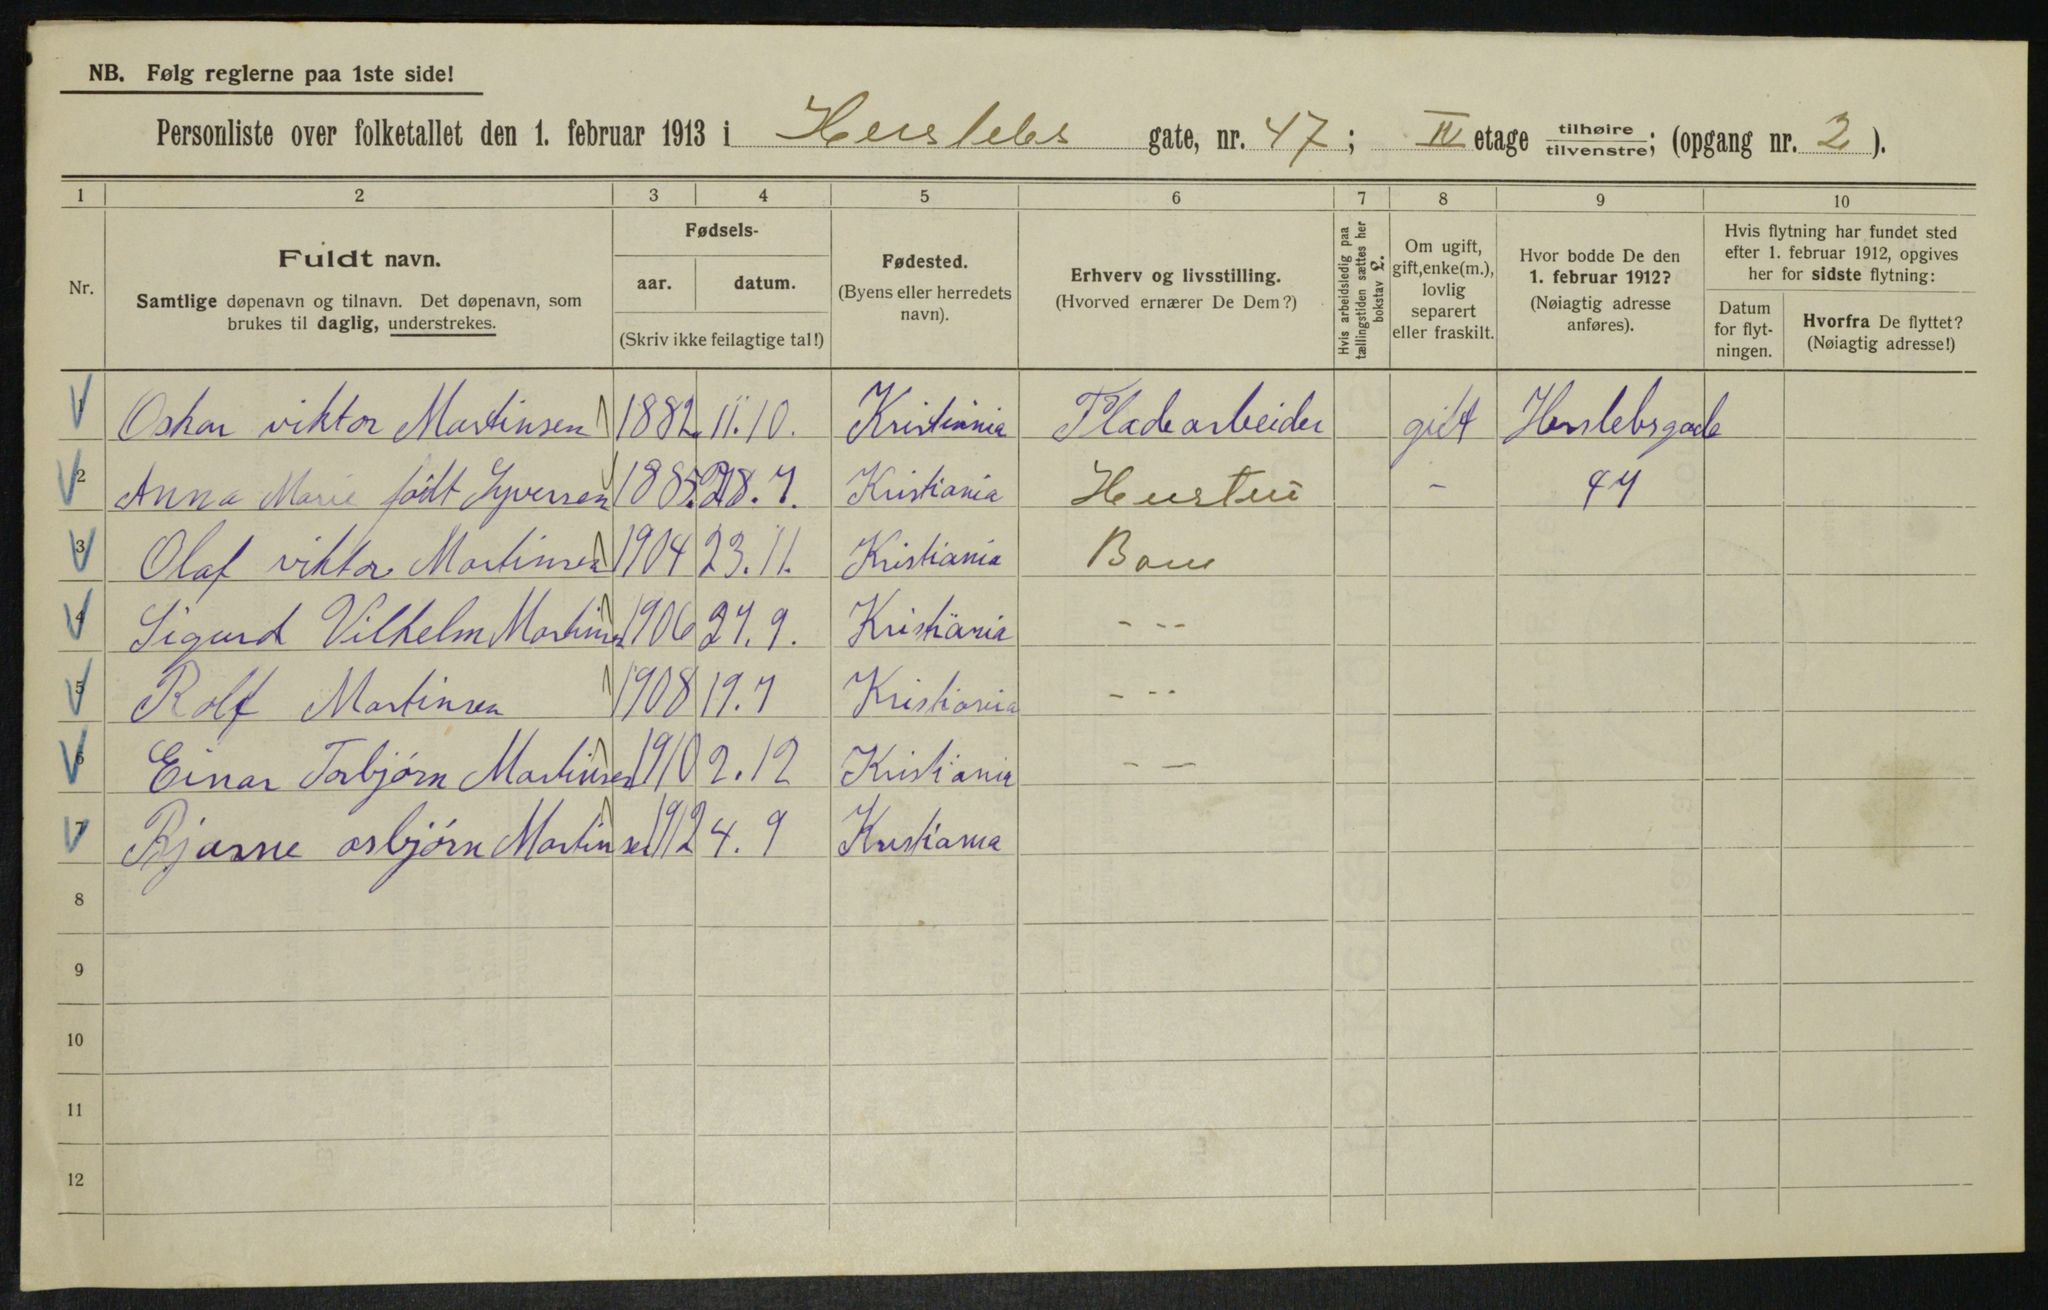 NB. Følg reglerne paa 1ste side!
Personliste over folketallet den 1. februar 1913 i Herslebs gate, nr. 47; IV etage tilhøire/tilvenstre; (opgang nr. 2).
1 2 3 4 5 6 7 8 9 10
Nr.
Fuldt navn.
Samtlige døpenavn og tilnavn. Det døpenavn, som
brukes til daglig, understrekes.
Fødsels-
aar. datum.
(Skriv ikke feilagtige tal!)
Fødested.
(Byens eller herredets
navn).
Erhverv og livsstilling.
(Hvorved ernærer De Dem?)
Hvis arbeidsledig paa
tællingstiden sættes her
bokstav L.
Om ugift,
gift, enke(m.),
lovlig
separert
eller fraskilt.
Hvor bodde De den
1. februar 1912?
(Nøiagtig adresse
anføres).
Hvis flytning har fundet sted
efter 1. februar 1912, opgives
her for sidste flytning:
Datum
for flyt-
ningen.
Hvorfra De flyttet?
(Nøiagtig adresse!)
1 Oskar viktor Martinsen 1882 11.10. Kristiania Pladearbeider gift Herslebsgade
2 Anna Marie født Syversen 1885 28.7. Kristiania Hustru - 47
3 Olaf viktor Martinsen 1904 23.11. Kristiania Barn
4 Sigurd Vilhelm Martinsen 1906 27.9. Kristiania - --
5 Rolf Martinsen 1908 19.7 Kristiania - --
6 Einar Torbjørn Martinsen 1910 2.12 Kristiania - —
7 Bjarne asbjørn Martinsen 1912 4.9 Kristiania
8
9
10
11
12